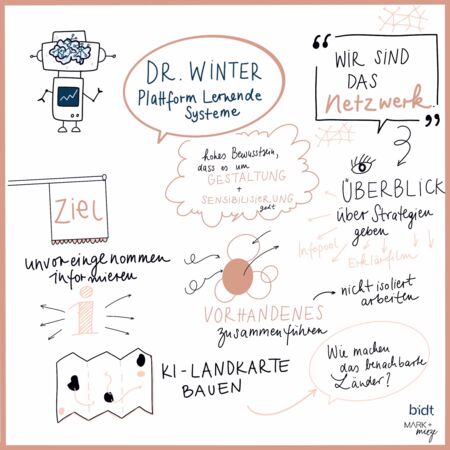 DR. WINTER
Plattform Lernende
Systeme
"WIR SIND
DAS
Netzwerk."
hohes Bewusstsein,
dass es um
GESTALTUNG
+
SENSIBILISIERUNG
geht
ÜBERBLICK
über Strategien
geben
Infopool
Erklärfilm
Ziel
unvoreingenommen
informieren
i
VORHANDENES
zusammenführen
nicht isoliert
arbeiten
KI-LANDKARTE
BAUEN
Wie machen
das benachbarte
Länder?
bidt
MARK+
mieze